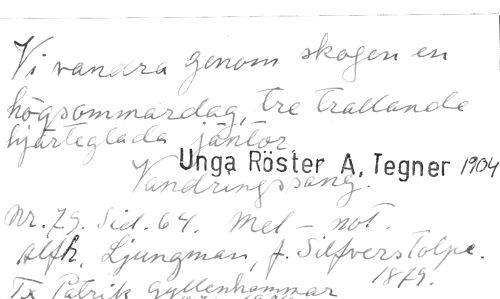 Vi vandra genom skogen en
högsommardag, tre trallande
hjärteglada jäntor.
Unga Röster A, Tegner 1904
Vandringssång.
Nr. 79. Sid. 64. Mel - not.
Alfh. Ljungman, f. Silfverstolpe.
1879.
Tx Patrik Gyllenhammar